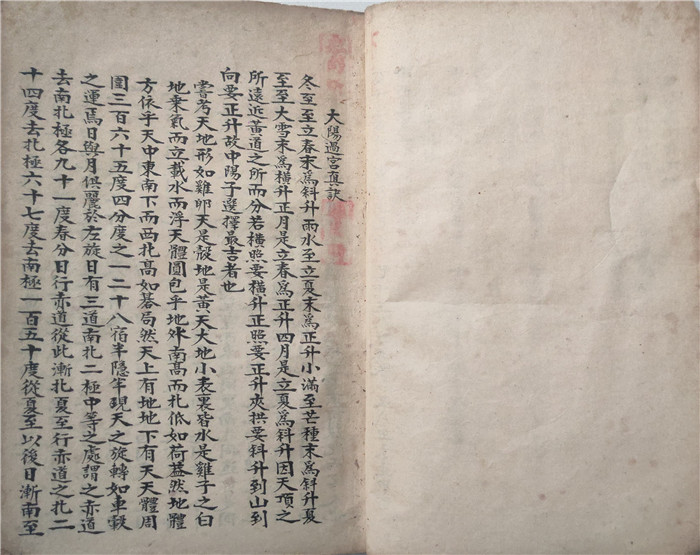 太陽過宮真訣
冬至至立春末為斜升雨水至立夏末為正升小滿至芒種末為斜升夏
至至大雪末為橫升正月是立春為正升四月是立夏為斜升因天頂之
所遠近黃道之所而分若橫照要橫升正照要正升夾拱要斜升到山到
向要正升故中陽子選擇最吉者也
嘗考天地形如雞卵天是殼地是黃天大地小表裏皆水是雞子之白
地乘氣而立載水而浮天體圓包乎地外南高而北低如荷蓋然地體
方依乎天中東南下而西北高如碁局然天上有地地下有天天體周
圍三百六十五度四分度之一二十八宿半隱半現天之旋轉如車轂
之運焉日與月俱麗於左旋日有三道南北二極中等之處謂之赤道
去南北極各九十一度春分日行赤道從此漸北夏至行赤道之北二
十四度去北極六十七度去南極一百五十度從夏至以後日漸南至